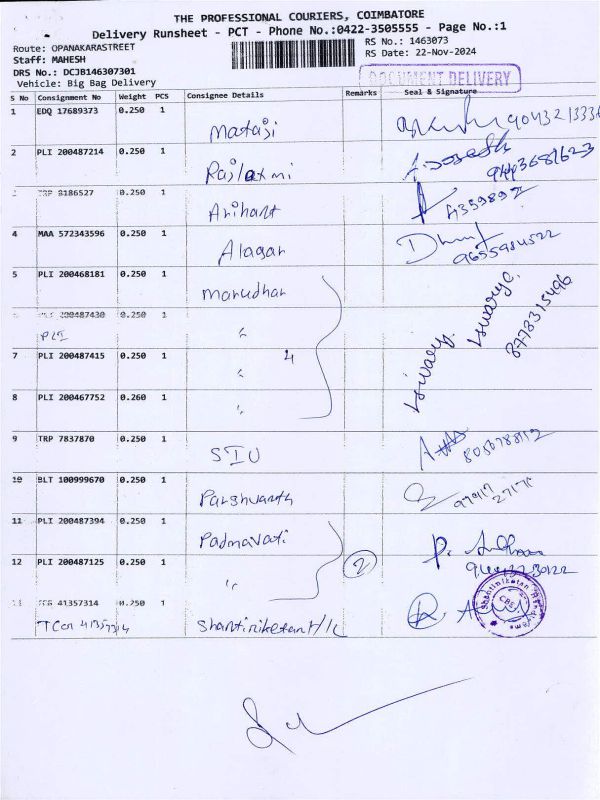 THE PROFESSIONAL COURIERS, COIMBATORE
Delivery Runsheet - PCT - Phone No.:0422-3505555 - Page No.:1
Route: OPANAKARASTREET
RS No.: 1463073
Staff: MAHESH
RS Date: 22-Nov-2024
DRS No.: DCJB146307301
DOCUMENT DELIVERY
Vehicle: Big Bag Delivery
S No Consignment No Weight PCS Consignee Details Remarks Seal & Signature
1 EDQ 17689373 0.250 1 Mataji
2 PLI 200487214 0.250 1 Rajlaxmi
9443681623
TRP 8186527 0.250 1 Arihant
4359892
4 MAA 572343596 0.250 1 Alagar
9655984522
5 PLI 200468181 0.250 1 Marudhar
200487430 0.250 1 "
PLI
7 PLI 200487415 0.250 1 " 4
8 PLI 200467752 0.260 1 "
Iswarya.
8778315496
9 TRP 7837870 0.250 1 SIU
10 BLT 100999670 0.250 1 Parshvanth
11 PLI 200487394 0.250 1 Padmavati
12 PLI 200487125 0.250 1 " 2
41357314 0.250 1 Shantiniketan H/K
CBE